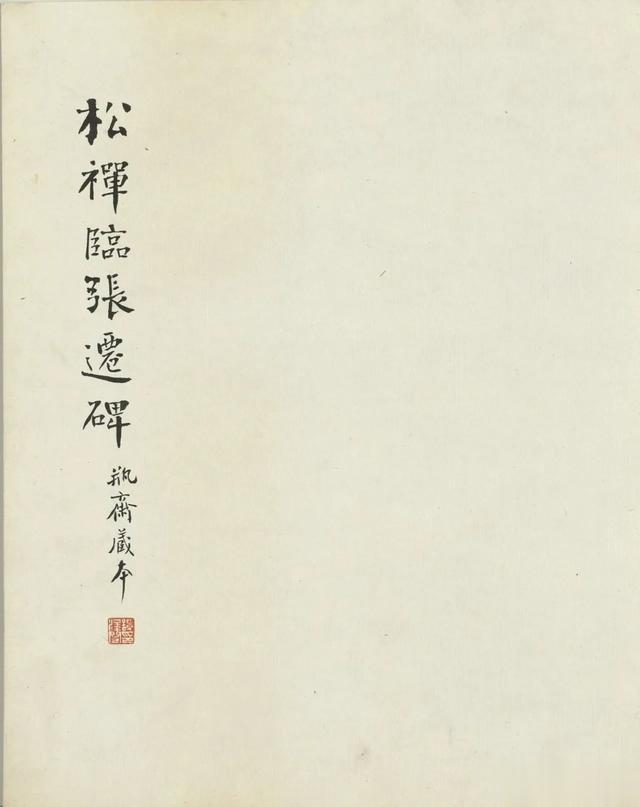 松禪臨張遷碑
瓶齋藏本